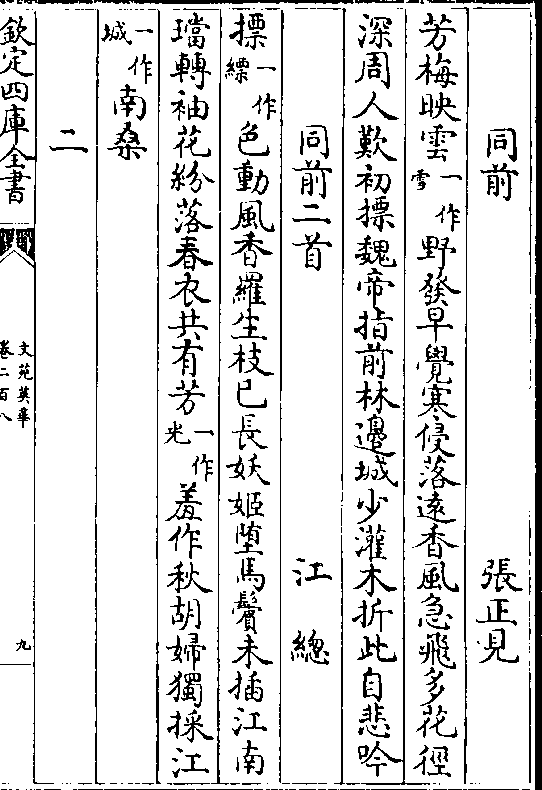 同前 張正見
芳梅映雲一作雪野發早覺寒侵落遠香風急飛多花徑
深周人歎初摽魏帝指前林邉城少灌木折此自悲吟
同前二首 江總
摽一作縹色動風香羅生枝已長妖姬墮馬鬢未插江南
璫轉袖花紛落春衣共有芳一作光羞作秋胡婦獨採江
一作城南桑
二
欽定四庫全書
文苑英華
卷二百八
九